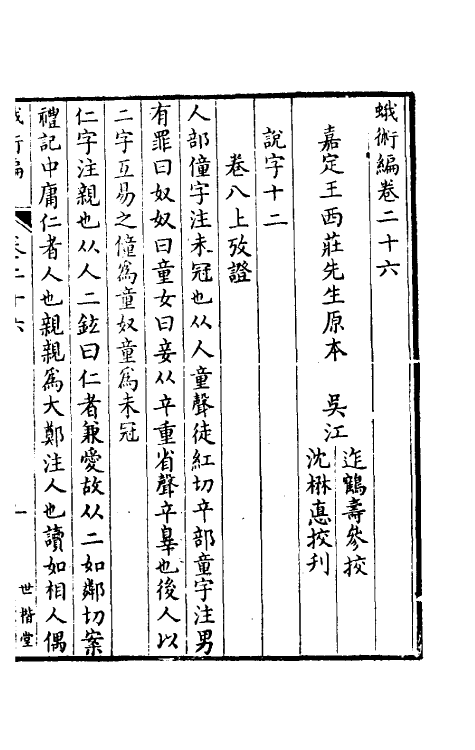 蛾術編卷二十六
嘉定王西莊先生原本　吳江
迮鶴壽參挍
沈楙悳挍刋
說字十二
卷八上攷證
人部僮字注未冠也从人童聲徒紅切䇂部童字注男
有罪曰奴奴曰童女曰妾从䇂重省聲䇂辠也後人以
二字互易之僮爲童奴童爲未冠
仁字注親也从人二鉉曰仁者兼愛故从二如鄰切案
禮記中庸仁者人也親親爲大鄭注人也讀如相人偶
蛾術編
卷二十六
一
世楷堂